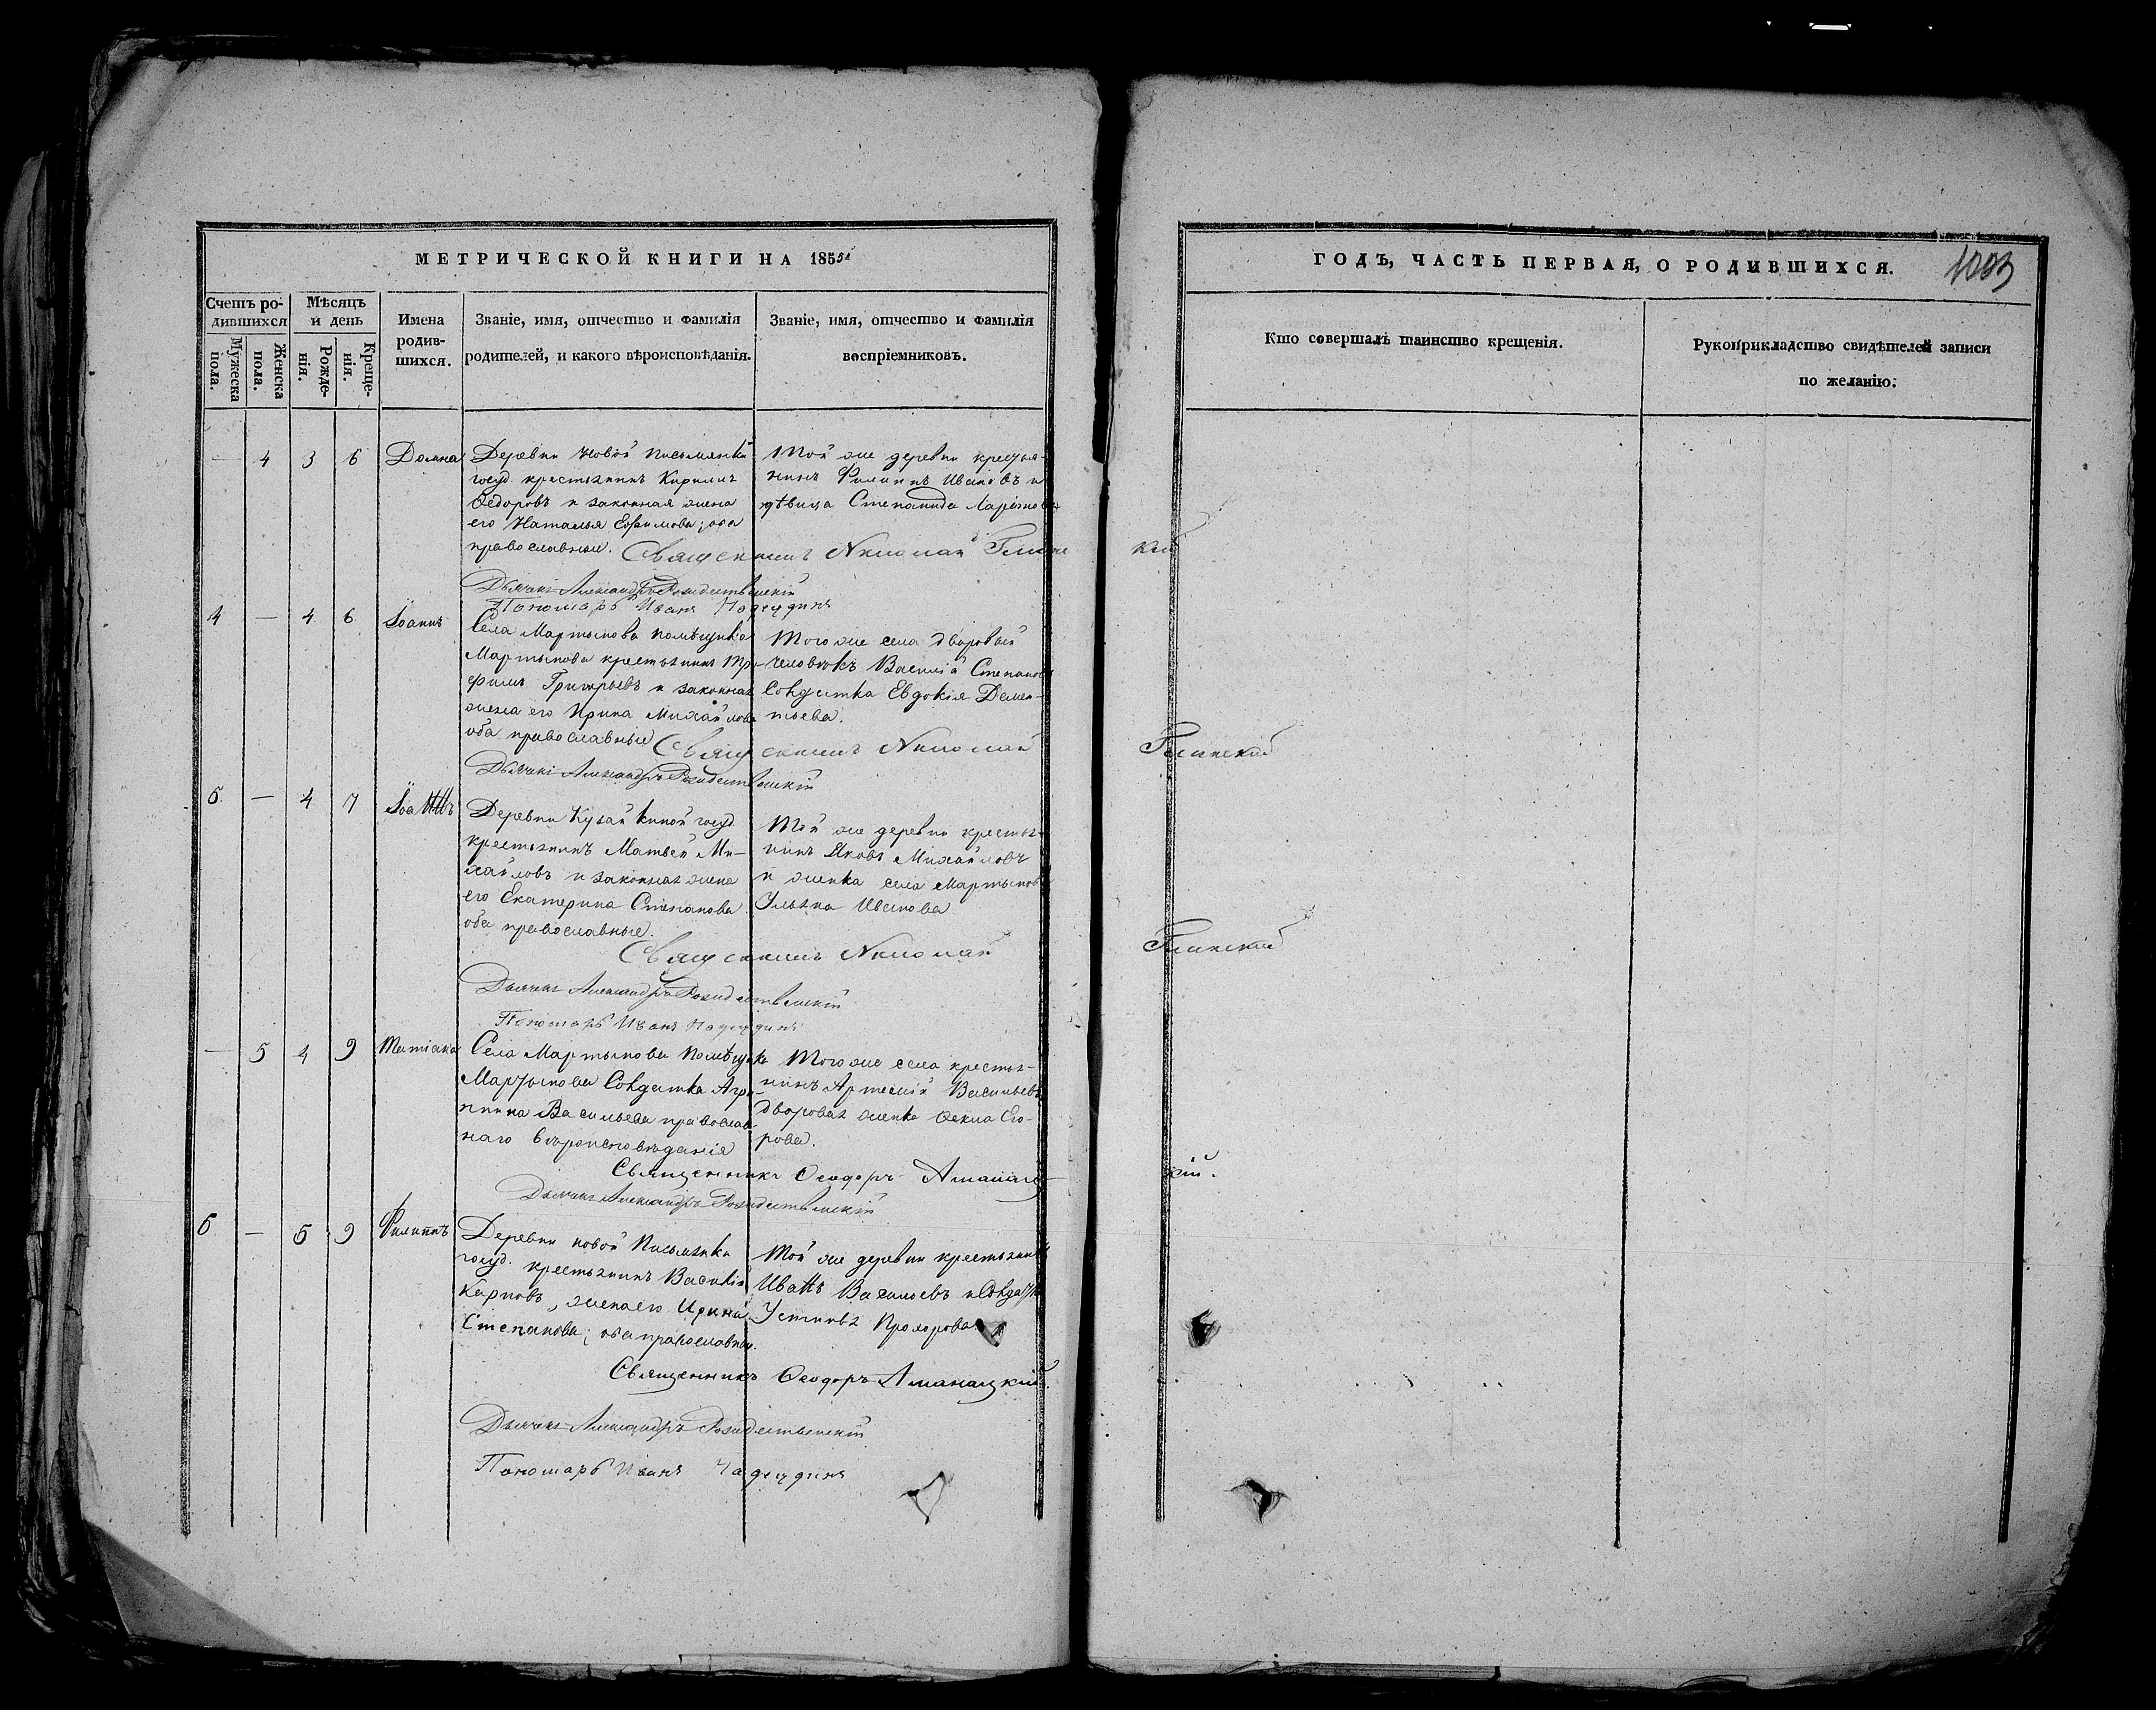 МЕТРИЧЕСКОЙ КНИГИ НА 185
Счетъ родившихся
Мѣсяцъ и день
Имена родившихся.
Званіе, имя, отчество и фамилія родителей, и какого вѣроисповѣданія.
Званіе, имя, отчество и фамилія воспріемниковъ.
Мужеска пола.
Женска пола.
Рожденія.
Крещенія.
— 4 3 6 Домна
Деревни Новой Письмянки
госуд. крестьянинъ Кириллъ
Ѳедоровъ и законная жена
его Наталья Ефимова; оба
православные.
Той же деревни крестья-
нинъ Филиппъ Ивановъ и
дѣвица Степанида
Священникъ Николай Глинскій
Дьячекъ Александръ Рождественскій
Пономарь Иванъ Надеждинъ
4 — 4 6 Іоаннъ
Села Мартынова помѣщика
Мартынова крестьянинъ Тро-
фимъ Григорьевъ и законная
жена его Ирина Михайлова
оба православные
Того же села дворовый
человѣкъ Василій Степановъ
Солдатка Евдокія Демен-
тьева.
Священникъ Николай Глинскій
Дьячекъ Александръ Рождественскій
5. — 4 7 Іоаннъ
Деревни Кузайкиной госуд.
крестьянинъ Матвей Ми-
хайловъ и законная жена
его Екатерина Степанова
оба православные.
Той же деревни крестья-
нинъ Яковъ Михайловъ
и женка села Мартынова
Ульяна Иванова
Священникъ Николай Глинскій
Дьячекъ Александръ Рождественскій
Пономарь Иванъ Надеждинъ
— 5 4 9 Татіана
Села Мартынова помѣщика
Мартынова Солдатка Агри-
пина Васильева православ-
наго вѣроисповѣданія
Того же села крестья-
нинъ Артемій Васильевъ
дворовая женка Ѳекла Его-
рова.
Священникъ Ѳеодоръ Аманацкій.
Дьячекъ Александръ Рождественскій
6 — 5 9 Филиппъ
Деревни новой Письмянки
госуд. крестьянинъ Василій
Карповъ, жена его Ирина
Степанова; оба православные.
Той же деревни крестьянинъ
Иванъ Васильевъ и Солдатка
Устинья Прохорова
Священникъ Ѳеодоръ Аманацкій.
Дьячекъ Александръ Рождественскій
Пономарь Иванъ Надеждинъ
ГОДЪ, ЧАСТЬ ПЕРВАЯ, О РОДИВШИХСЯ.
1003
Кто совершалъ таинство крещенія.
Рукоприкладство свидѣтелей записи
по желанію.